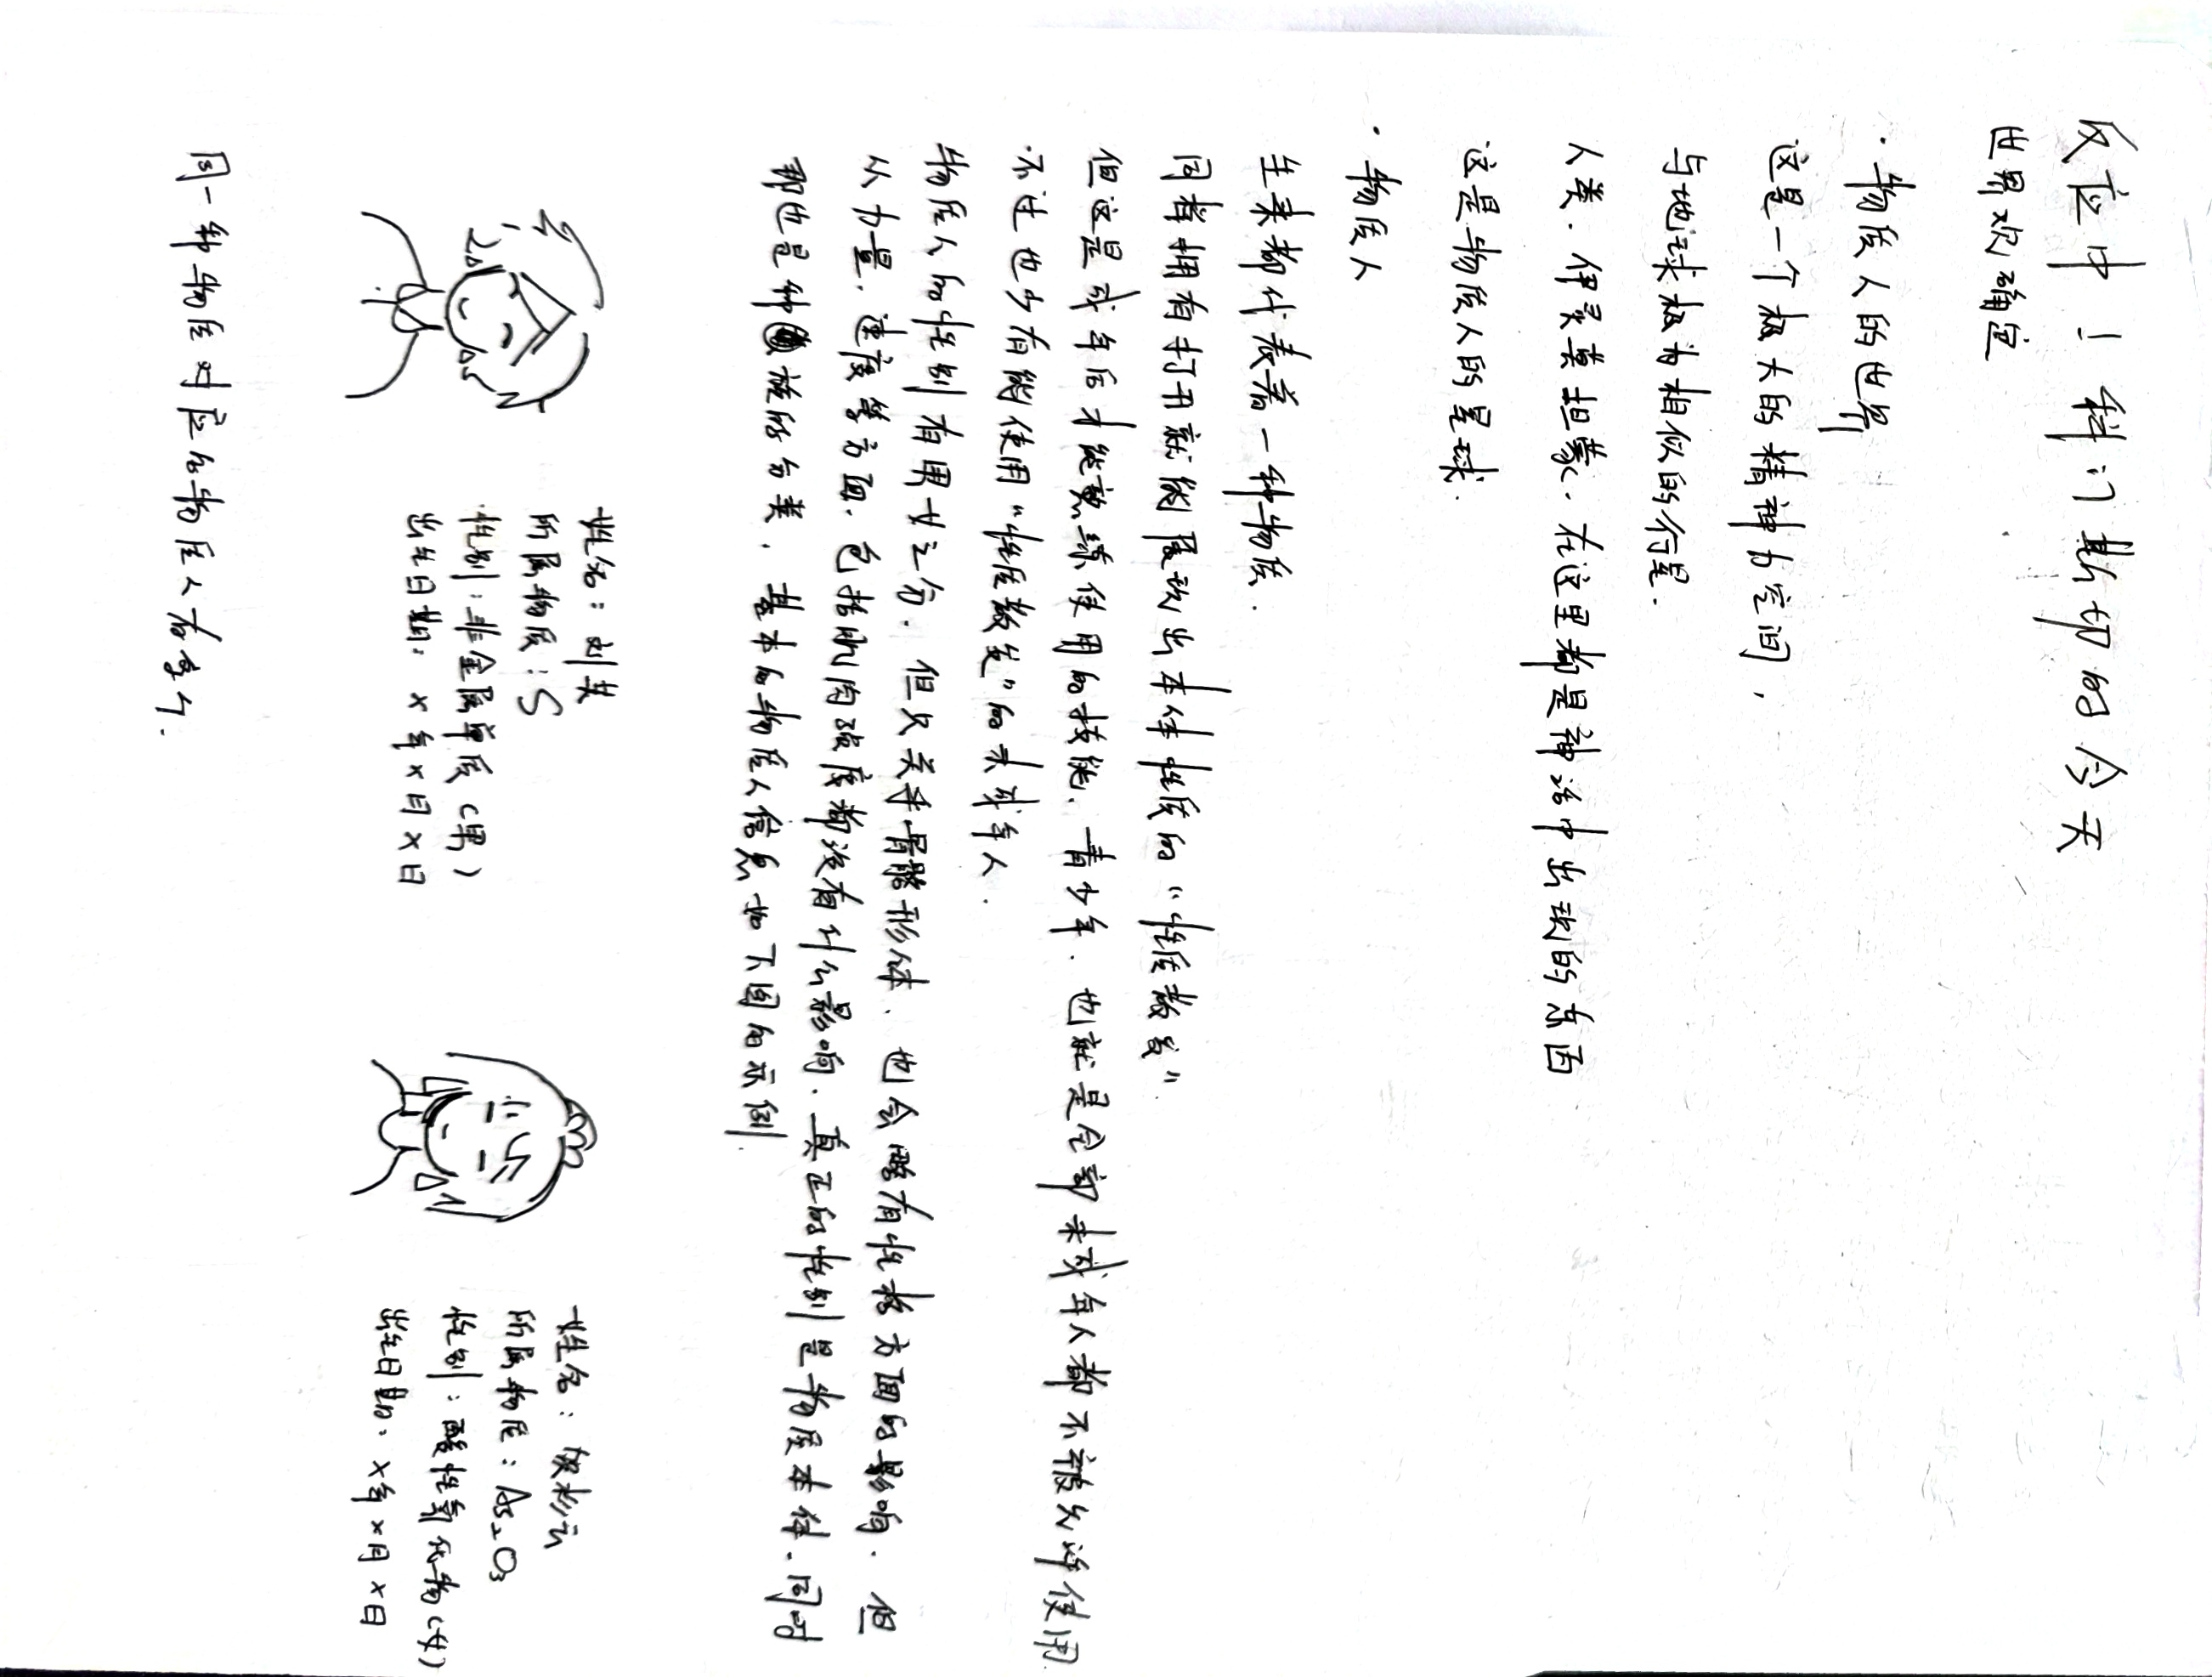 反应中！科门斯切的今天
世界观确定
·物质人的世界
这是一个极大的精神力空间，
与地球极为相似的行星.
人类、伊灵莫担蒙、在这里都是神话中出现的东西
这是物质人的星球.
·物质人
生来都代表着一种物质.
同样拥有打开就能展现出本体性质的“性质散发”
但这是成年后才能熟练使用的技能、青少年、也就是全部未成年人都不被允许使用.
不过也少有能使用“性质散发”的未成年人.
物质人的性别有男女之分，但只关乎骨骼形体、也会略有性格方面的影响. 但
从力量、速度等方面、包括肌肉强度都没有什么影响. 真正的性别是物质本体、同时
那也是种族的分类，基本的物质人信息如下图的示例
姓名：刘
所属物质：S
性别：非金属单质（男）
出生日期：×年×月×日
姓名：
所属物质：As₂O₃
性别：酸性氧化物（女）
出生日期：×年×月×日
同一种物质对应的物质人有多个.